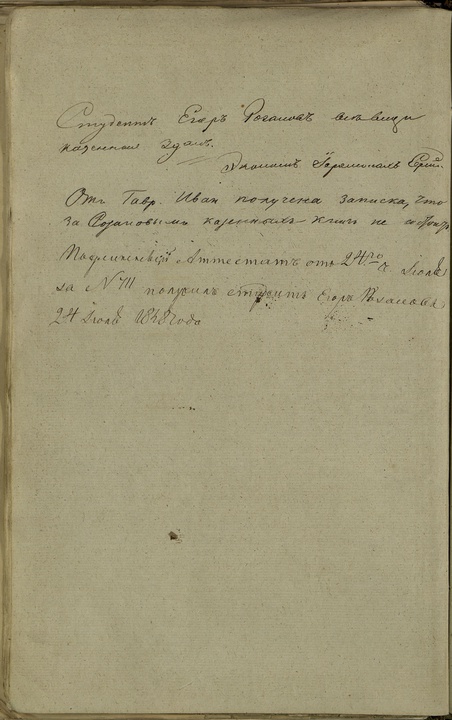 Студентъ Егоръ Розановъ все вещи
казенныя здалъ.
Экономъ
Отъ Гавр. Иван получена записка, что
за Розановымъ казенныхъ книгъ не
Аттестатъ отъ 24го Iюля
за № 711 получилъ студентъ Егоръ Розановъ
24 Iюля 1848 года